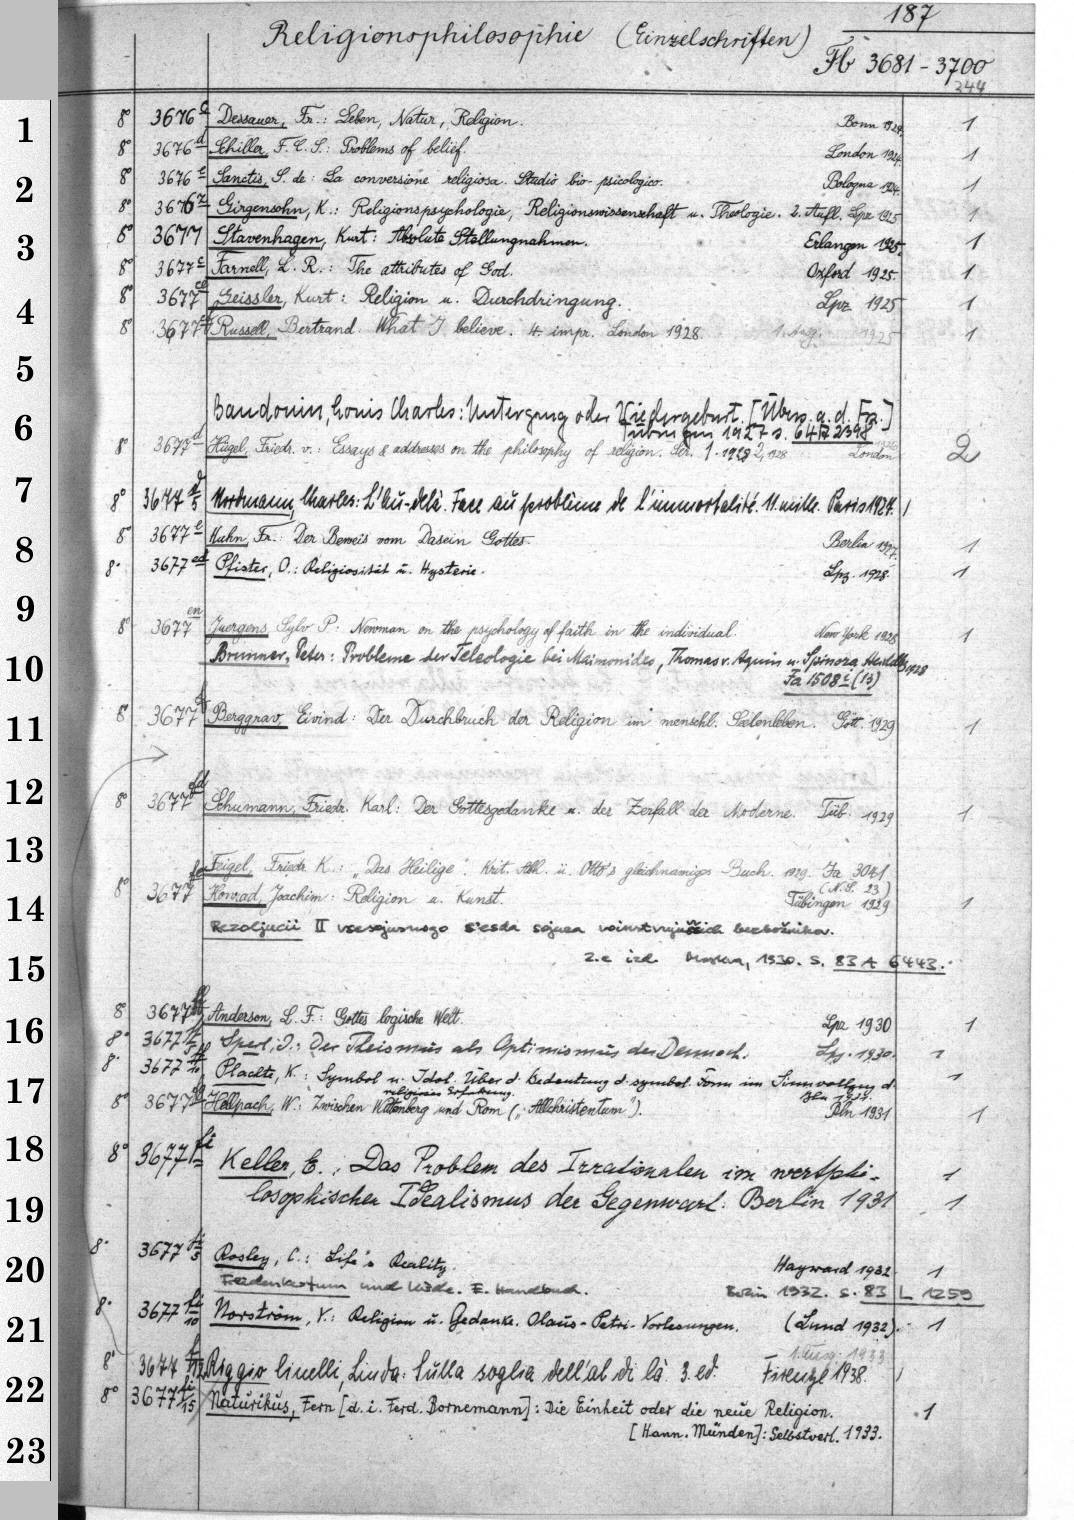 187
Religionsphilosophie (Einzelschriften)
Fb 3681-3700
244
1
8° 3676 c Dessauer, Fr.: Leben, Natur, Religion. Bonn 1924. 1
8° 3676 d Schiller, F. C. S.: Problems of belief. London 1924. 1
2
8° 3676 e Sanctis, S. de: La conversione religiosa. Studio bio-psicologico. Bologna 1924. 1
8° 3676 z Girgensohn, K.: Religionspsychologie, Religionswissenschaft u. Theologie. 2. Aufl. Lpz 1925 1
3
8° 3677 Stavenhagen, Kurt: Absolute Stellungnahmen. Erlangen 1925. 1
8° 3677 c Farnell, L. R.: The attributes of God. Oxford 1925 1
4
8° 3677 Geissler, Kurt: Religion u. Durchdringung. Lpz 1925 1
8° 3677 Russell, Bertrand. What I believe. 4. impr. London 1928. 1. Ausg. 1925 1
5
6
Baudouin, Louis Charles: Untergang oder Wiedergeburt. [Übers. a. d. Frz.]
Tübingen 1927 s. 64 A 2398
8° 3677 d Hügel, Friedr. v.: Essays & addresses on the philosophy of religion. Ser. 1. 1928 2, 1928 London 2
7
8° 3677 d/5 Nordmann, Charles: L'Au-delà. Face au problème de l'immortalité. 11. mille. Paris 1927. 1
8
8° 3677 e Huhn, Fr.: Der Beweis vom Dasein Gottes. Berlin 1927. 1
8° 3677 ed Pfister, O.: Religiosität u. Hysterie. Lpz. 1928. 1
9
8° 3677 en Juergens, Sylv. P. Newman on the psychology of faith in the individual. New York 1928 1
10
Brunner, Peter: Probleme der Teleologie bei Maimonides, Thomas v. Aquin u. Spinoza. Heidelb. 1928
Fa 1508 i (13)
11
8° 3677 f Berggrav, Eivind: Der Durchbruch der Religion im menschl. Seelenleben. Gött. 1929 1
12
8° 3677 fd Schumann, Friedr. Karl: Der Gottesgedanke u. der Zerfall der Moderne. Tüb. 1929 1
13
Feigel, Friedr. K.: "Das Heilige". Krit. Abh. ü. Otto's gleichnamiges Buch. 1929. Fa 3041
(N.S. 23)
14
8° 3677 fe Konrad, Joachim: Religion u. Kunst. Tübingen 1929 1
Rezoljucii II vsesojuznogo s'ezda sojuza voinstvujuščich bezbožnikov.
15
2.e izd. Moskva, 1930. S. 83 A 6443.
16
8° 3677 Anderson, L. F.: Gottes logische Welt. Lpz 1930 1
8° 3677 Sperl, J.: Der Theismus als Optimismus des Dennoch. Lpz. 1930. 1
8° 3677 Plachte, K.: Symbol u. Idol. Über d. Bedeutung d. symbol. Form im Sinnvollzug d. 1
17
religiösen Erfahrung. Bln 1931.
8° 3677 Hellpach, W.: Zwischen Wittenberg und Rom („Allchristentum"). Bln 1931 1
18
8° 3677 fi Keller, E.: Das Problem des Irrationalen im wertphi- 1
19
losophischen Idealismus der Gegenwart. Berlin 1931 1
20
8° 3677 fi/5 Rosley, C.: Life's Reality. Hayward 1932. 1
Freidenkertum und Kirche. E. Handbuch. Berlin 1932. S. 83 L 1259
21
8° 3677 fi/10 Norström, V.: Religion u. Gedanke. Olaus-Petri-Vorlesungen. (Lund 1932). 1
1. Ausg. 1933
22
8° 3677 fi/12 Riggio Cinelli, Linda: Sulla soglia dell'al di là. 3. ed. Firenze 1938. 1
8° 3677 fi/15 Naturikus, Fern [d. i. Ferd. Bornemann]: Die Einheit oder die neue Religion. 1
23
[Hann. Münden]: Selbstverl. 1933.